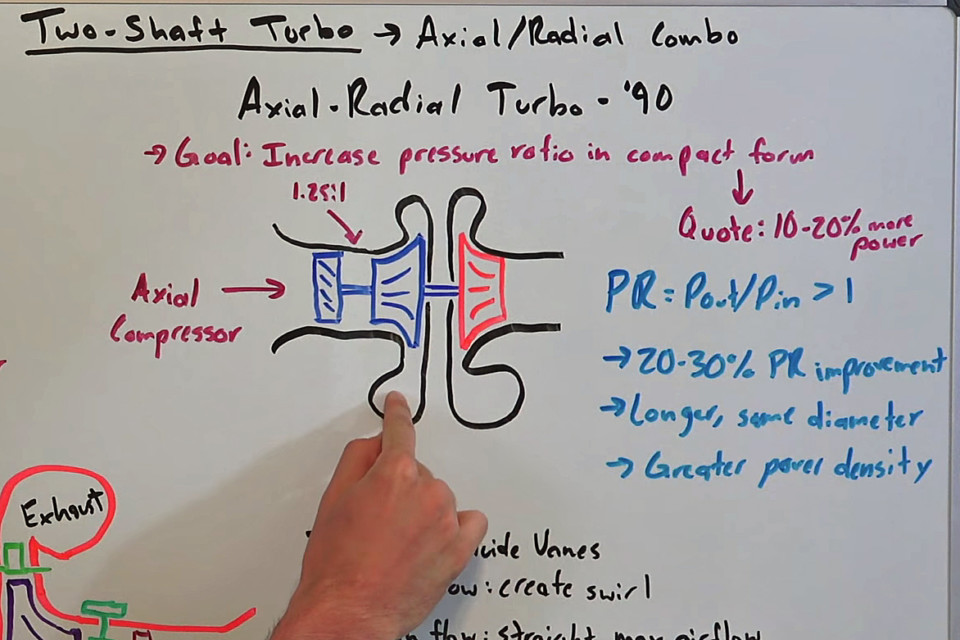 Two-Shaft Turbo → Axial/Radial Combo
Axial-Radial Turbo - '90
→ Goal: Increase pressure ratio in compact form
1.25:1
Quote: 10-20% more power
Axial Compressor
PR = Pout/Pin > 1
→ 20-30% PR improvement
→ Longer, same diameter
→ Greater power density
Exhaust
Vanes
: create swirl
flow: straight max airflow